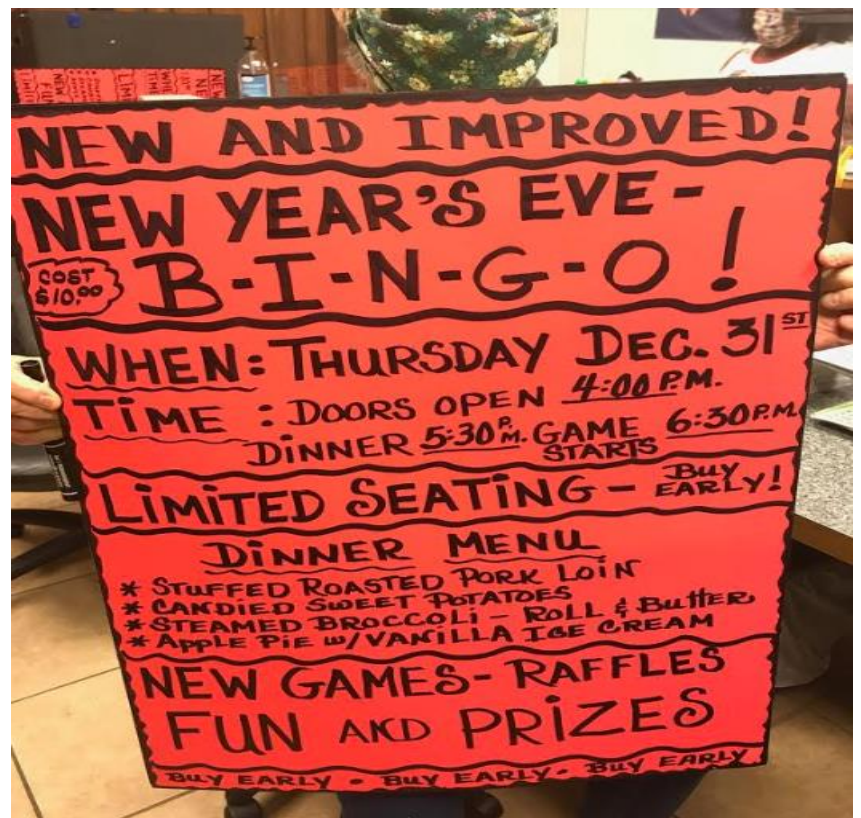 NEW AND IMPROVED!
NEW YEAR'S EVE-
COST
$10.00
B-I-N-G-O!
WHEN: THURSDAY DEC. 31ST
TIME : DOORS OPEN 4:00 P.M.
DINNER 5:30 P.M. GAME STARTS 6:30 P.M.
LIMITED SEATING- BUY EARLY!
DINNER MENU
* STUFFED ROASTED PORK LOIN
* CANDIED SWEET POTATOES
* STEAMED BROCCOLI - ROLL & BUTTER
* APPLE PIE W/VANILLA ICE CREAM
NEW GAMES- RAFFLES
FUN AND PRIZES
BUY EARLY • BUY EARLY • BUY EARLY